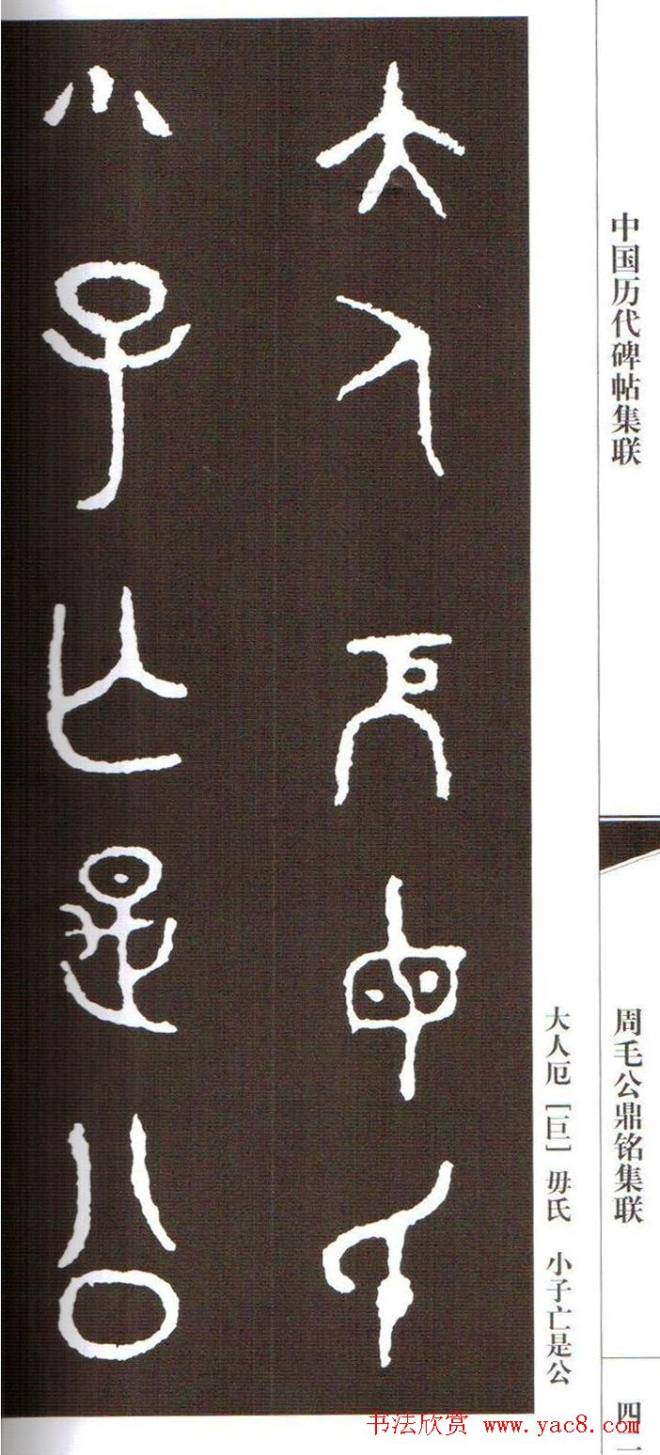 中国历代碑帖集联
周毛公鼎铭集联
四一
大人厄［巨］毋氏 小子亡是公
大人厄毋氏
小子亡是公
书法欣赏 www.yac8.com